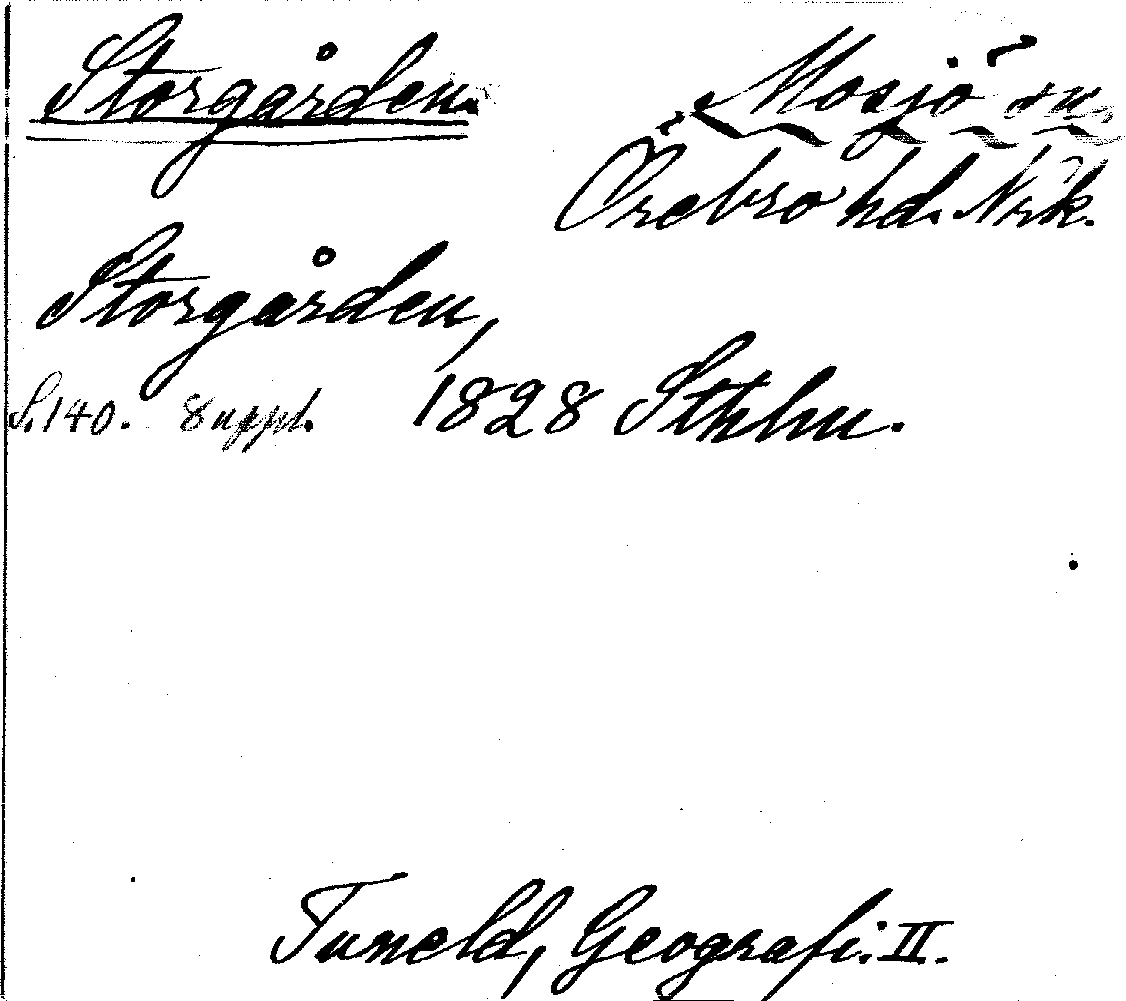 Storgården. Mosjö sn.
Örebro hd. Nrk.
Storgården,
S. 140. Suppl. 1828 Sthlm.
Tuneld, Geografi. II.